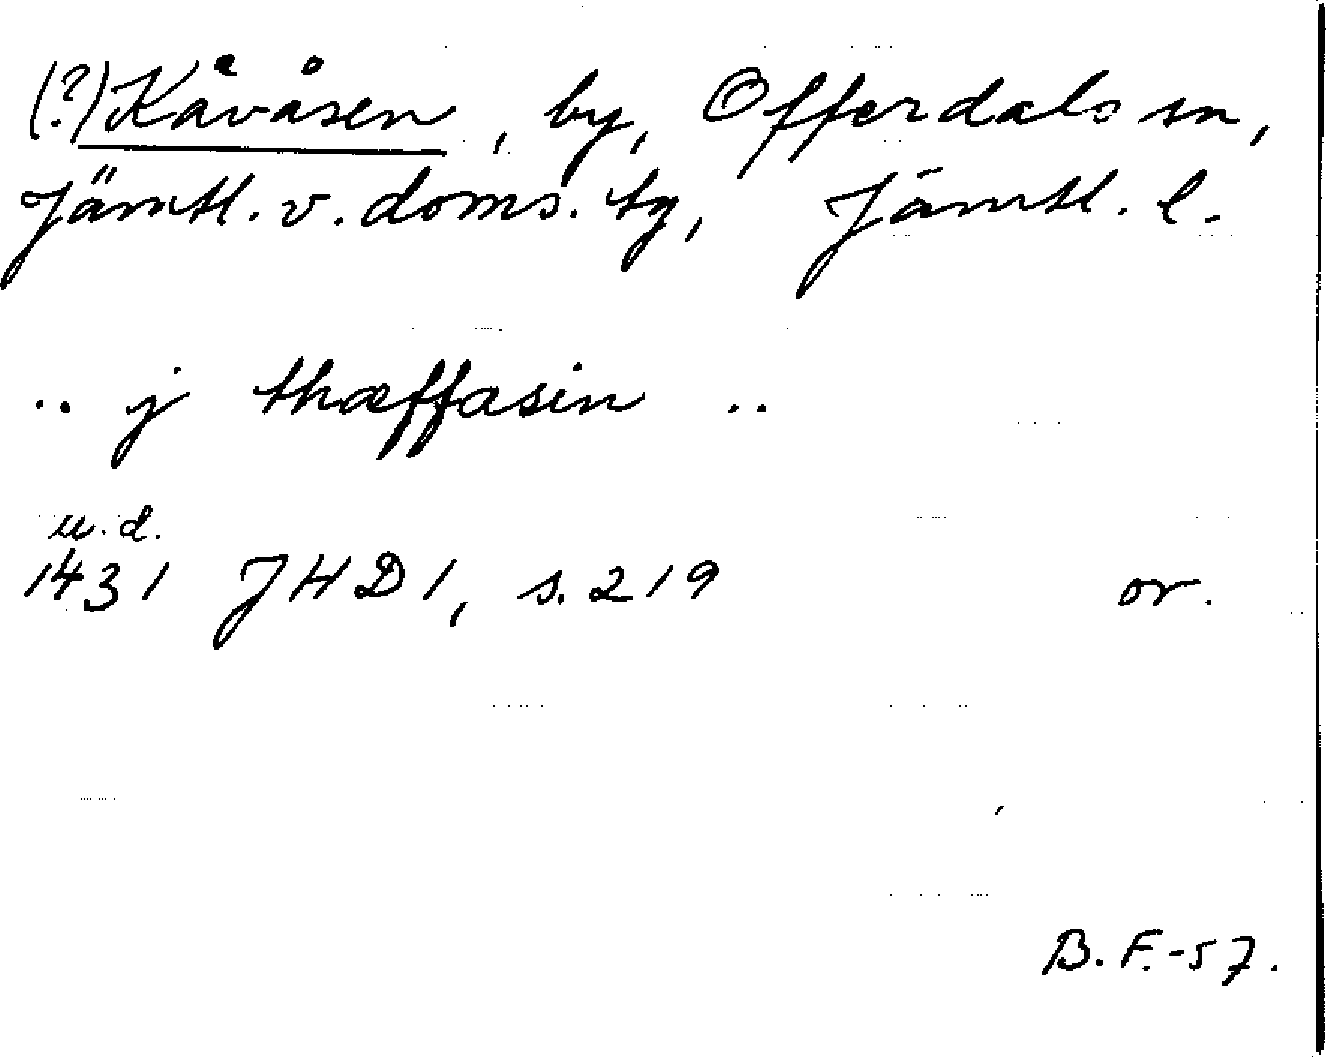 (?) Kåvåsen, by, Offerdals sn,
Jämtl. v. doms. tg, Jämtl. l.
.. j thæffasin ..
u.d.
1431 JHD 1, s. 219 or.
B. F. -57.